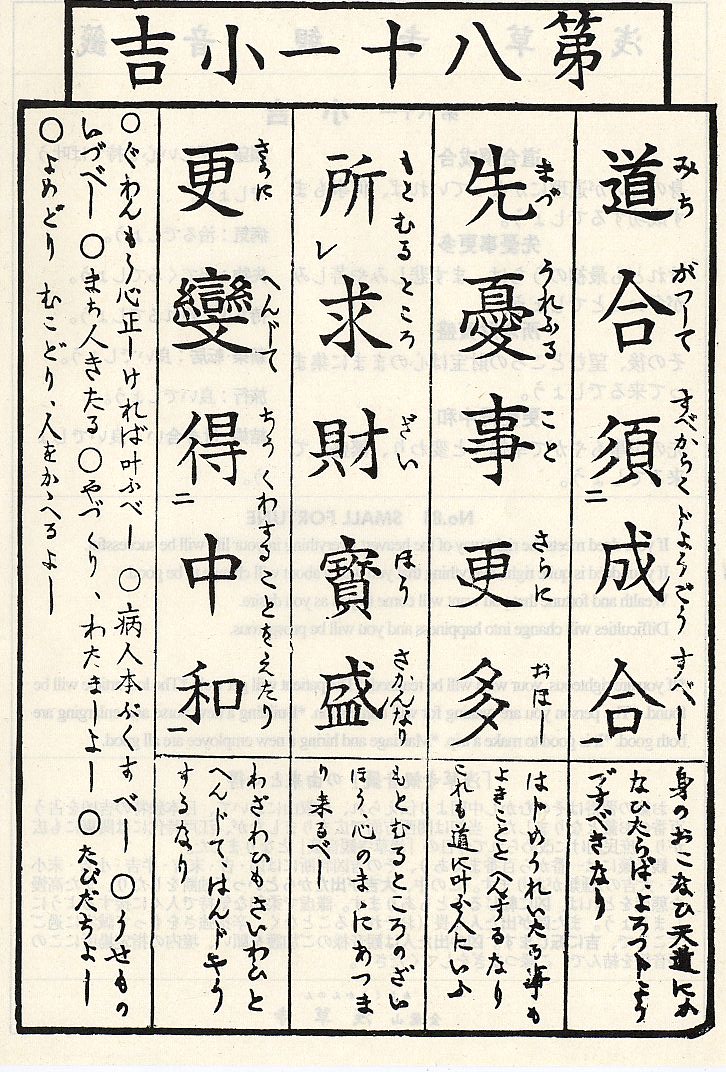 第八十一小吉
道合須二成合
みち がつして すべからく じようごう すべし
身のおこなひ天道にか
なひたらば、よろづ
べきなり
先憂事更多
まづ うれふる こと さらに おほし
はじめうれいたる事も
よきことにへんするなり
これも道に叶ふ人にいふ
所レ求財寳盛
もとむるところ ざい ほう さかんなり
もとむるところのざい
ほう、心のまにあつま
り来るべし
更變得二中和一
さらに へんじて ちうくわすることをえたり
わざわひもさいわひと
へんじてはんじやう
するなり
〇ぐわんもう心正しければ叶ふべし 〇病人本ぷくすべし 〇うせもの
いづべし 〇まち人きたる 〇やづくり、わたましよし 〇たびだちよし
〇よめどり むこどり、人をかゝへるよし